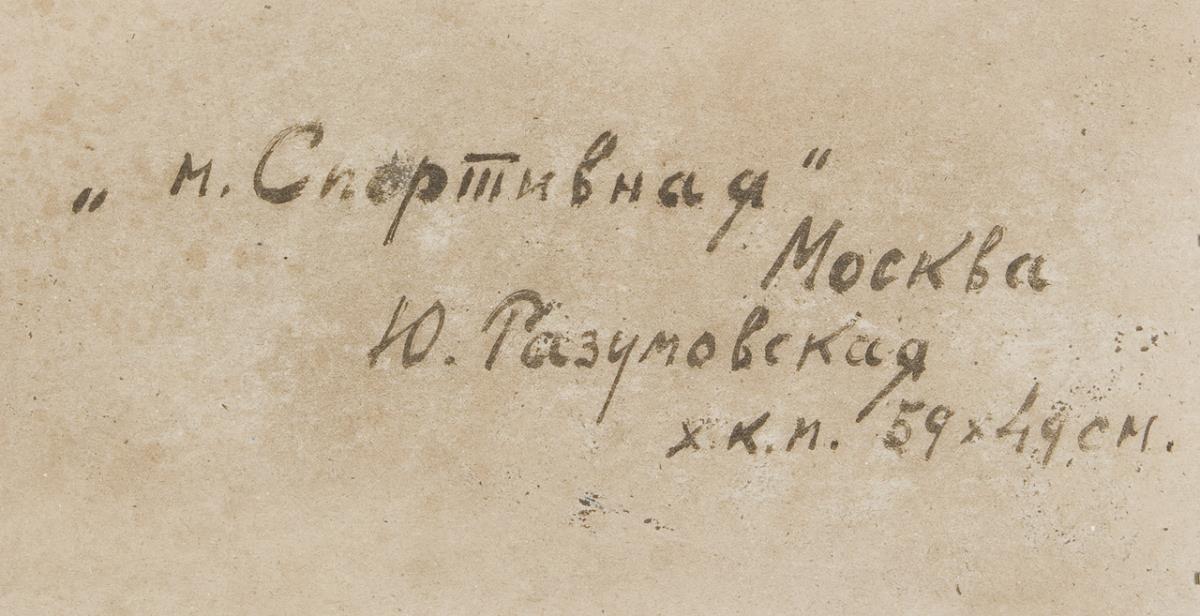 „м. Спортивная"
Москва
Ю. Разумовская
х.к.м. 59х49 см.